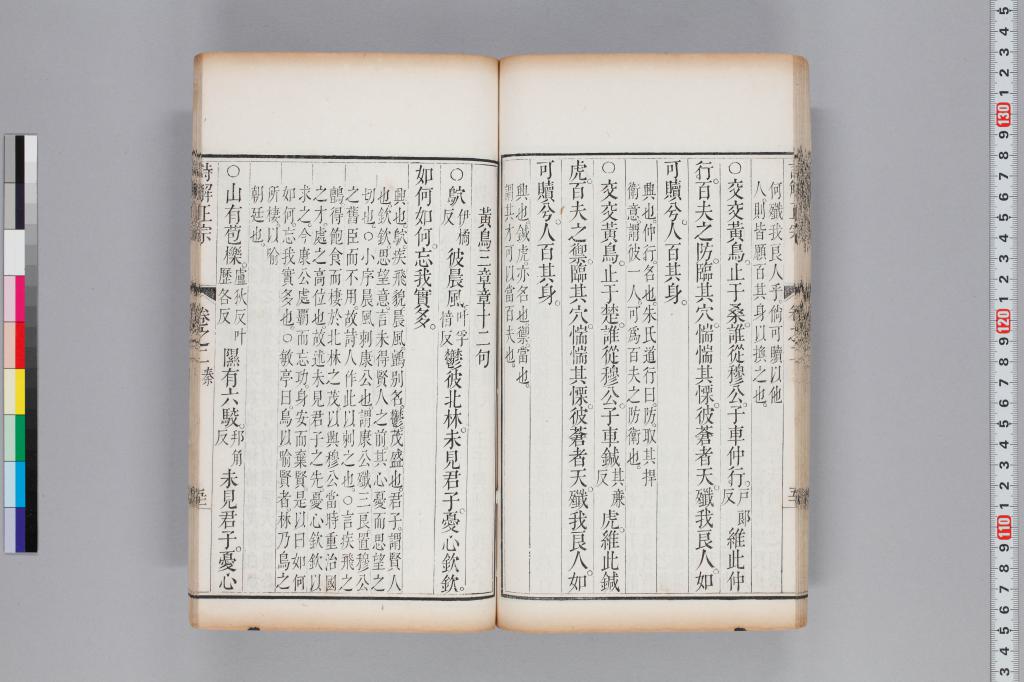 何殲我良人乎倘可贖以他
人則皆願百其身以換之也
○交交黃鳥止于桑誰從穆公子車仲行戸郎反維此仲
行百夫之防臨其穴惴惴其慄彼蒼者天殲我良人如
可贖兮人百其身
興也仲行名也朱氏道行曰防取其捍
衛意謂彼一人可為百夫之防衛也
○交交黃鳥止于楚誰從穆公子車鍼其廉反虎維此鍼
虎百夫之禦臨其穴惴惴其慄彼蒼者天殲我良人如
可贖兮人百其身
興也鍼虎亦名也禦當也
謂其才可以當百夫也
黃鳥三章章十二句
○鴥伊橘反彼晨風叶孚愔反鬱彼北林未見君子憂心欽欽
如何如何忘我實多
興也鴥疾飛貌晨風鸇別名鬱茂盛也君子謂賢人
也欽欽思望意言未得賢人之前其心憂而思望之
切也○小序晨風刺康公也謂康公殲三良置穆公
之舊臣而不用故詩人作此以刺之也○言疾飛之
鸇得飽食而棲於北林之茂以興穆公當時重治國
之才處之高位也故述未見君子之先憂心欽欽以
求之今康公處覇而忘功身安而棄賢是以曰如何
如何忘我實多也○敏亭曰鳥以喻賢者林乃鳥之
所棲以喻
朝廷也
○山有苞櫟盧狄反叶歷各反隰有六駮邦角反未見君子憂心
詩解正宗
卷之二
秦